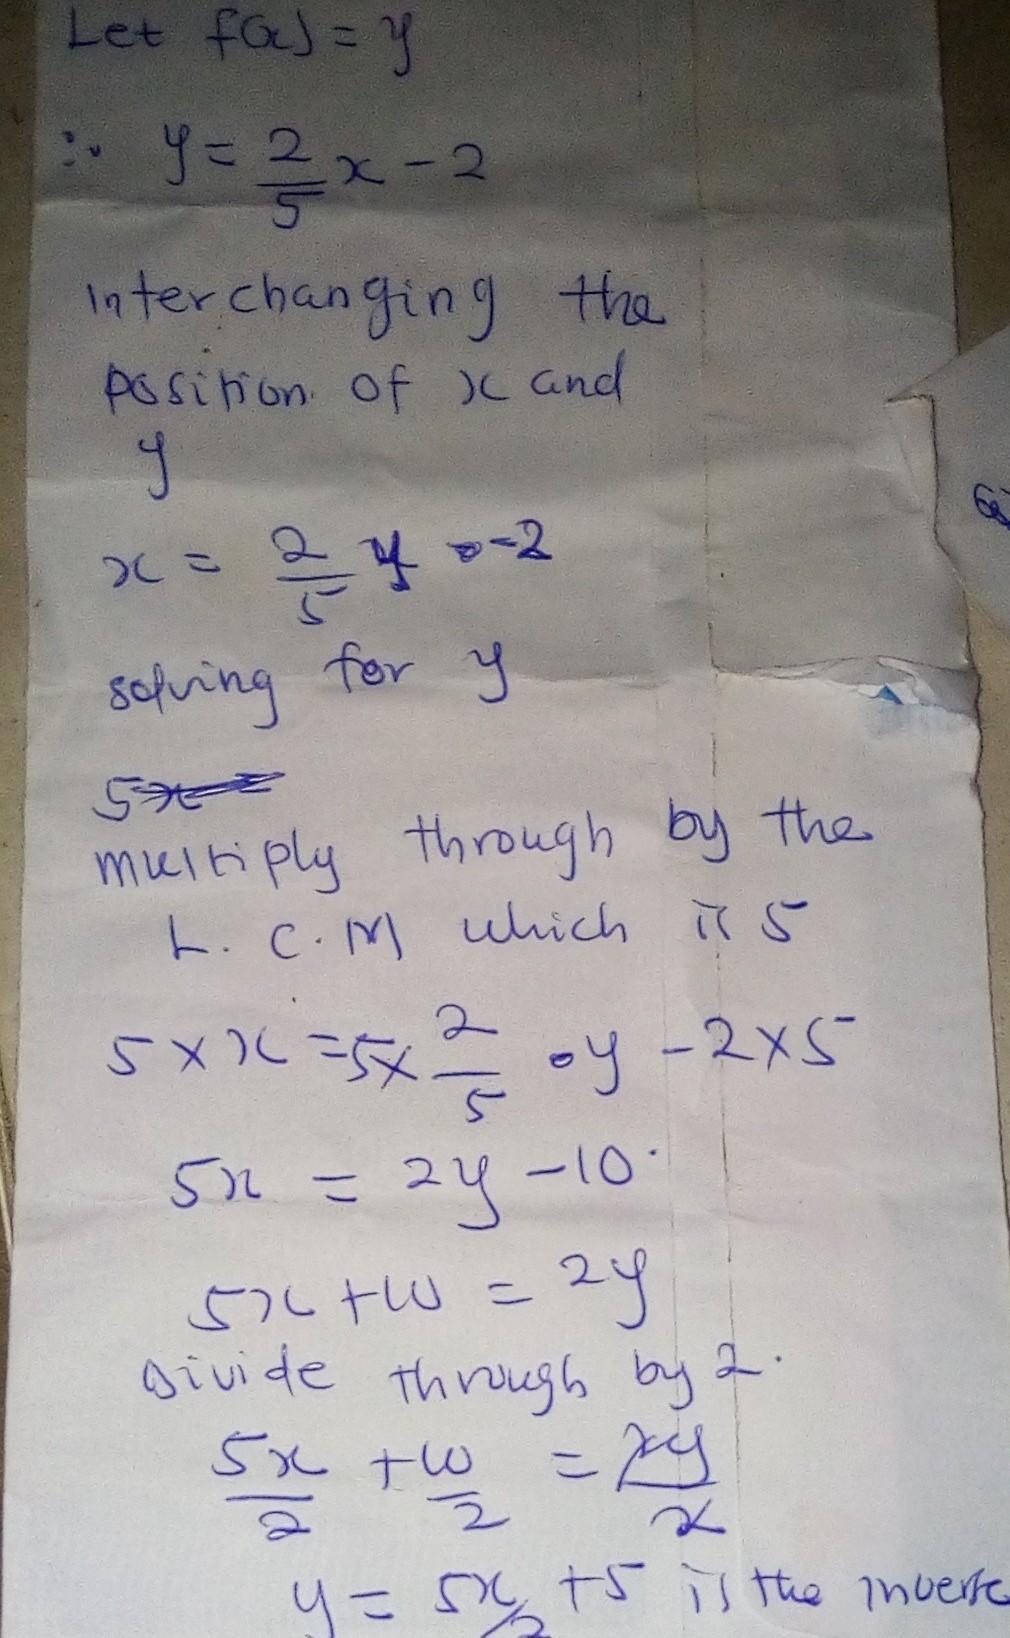 Let f(x) = y
∴ y = 2/5 x - 2
Interchanging the
position of x and
y
x = 2/5 y - 2
solving for y
multiply through by the
L.C.M which is 5
5 × x = 5 × 2/5 • y - 2 × 5
5x = 2y - 10
5x + 10 = 2y
Divide through by 2.
5x/2 + 10/2 = 2y/2
y = 5x/2 + 5 is the inverse